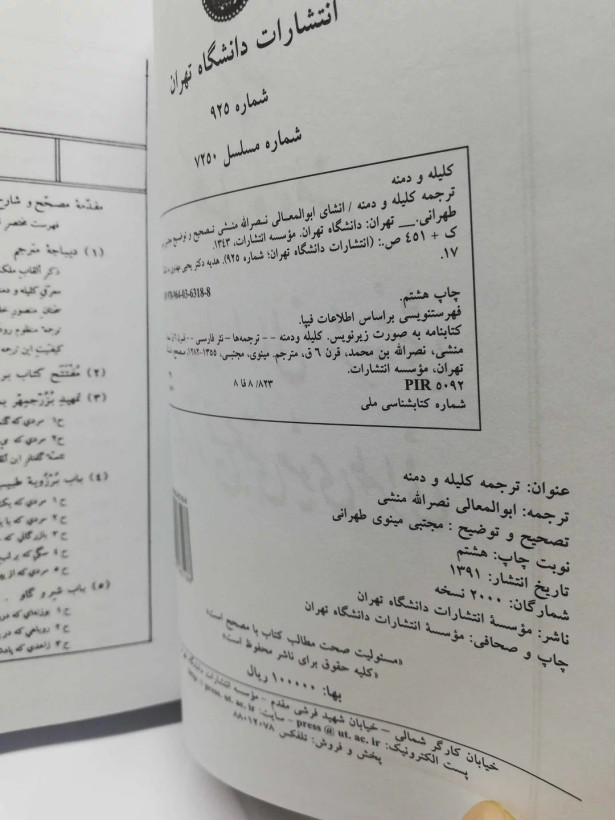 انتشارات دانشگاه تهران
شماره ۹۲۵
شماره مسلسل ۷۲۵۰
کلیله و دمنه
ترجمه کلیله و دمنه / انشای ابوالمعالی نصرالله منشی تصحیح و توضیح
طهرانی.__ تهران: دانشگاه تهران، مؤسسه انتشارات، ۱۳۴۳.
ک + ٤٥١ ص.: (انتشارات دانشگاه تهران؛ شماره ۹۲۵). هدیه دکتر یحیی مهدوی
۱۷.
978-964-03-6318-8
چاپ هشتم.
فهرستنویسی براساس اطلاعات فیپا.
کتابنامه به صورت زیرنویس. کلیله ودمنه -- ترجمه‌ها- نثر فارسی -
منشی، نصرالله بن محمد، قرن ٦ ق، مترجم. مینوی، مجتبی، ۱۳۵۵-۱۲۸۲
تهران، مؤسسه انتشارات.
PIR ۵۰۹۲ ۸۲۳/ ۸ فا ۸
شماره کتابشناسی ملی
عنوان: ترجمه کلیله و دمنه
ترجمه: ابوالمعالی نصرالله منشی
تصحیح و توضیح : مجتبی مینوی طهرانی
نوبت چاپ: هشتم
تاریخ انتشار: ۱۳۹۱
شمارگان: ۲۰۰۰ نسخه
ناشر: مؤسسۀ انتشارات دانشگاه تهران
چاپ و صحافی: مؤسسۀ انتشارات دانشگاه تهران
«مسئولیت صحت مطالب کتاب با مصحح است»
«کلیه حقوق برای ناشر محفوظ است»
بها: ۱۰۰۰۰۰ ریال
خیابان کارگر شمالی - خیابان شهید فرشی مقدم - مؤسسه انتشارات دانشگاه
پست الکترونیک: press @ ut. ac. ir - سایت: http:// press. ut. ac. ir
پخش و فروش: تلفکس ۸۸۰۱۲۰۷۸
مقدمۀ مصحّح و شارح
فهرست مختصر
(۱) دیباجۀ مترجم
ذکر القاب ملک
معرّفی کلیله و دمنه
ترجمۀ منظوم رودکی
کیفیّت این ترجمه
(۲) مُفْتَتَح کتاب بر
(۳) تمهید بُزُرجمِهر
ح۱ مردی که
ح۲ مردی که
(۴) باب بُرْزویۀ طبیب
ح۱ مردی که
ح۲ مردی که با
ح۳ بازرگانی که
ح۴ سگی که بر لب
ح۵ مردی که از
(۵) باب شیر و گاو
ح۱ بوزنه‌ای که
ح۲ روباهی که در
ح۳ زاهدی که